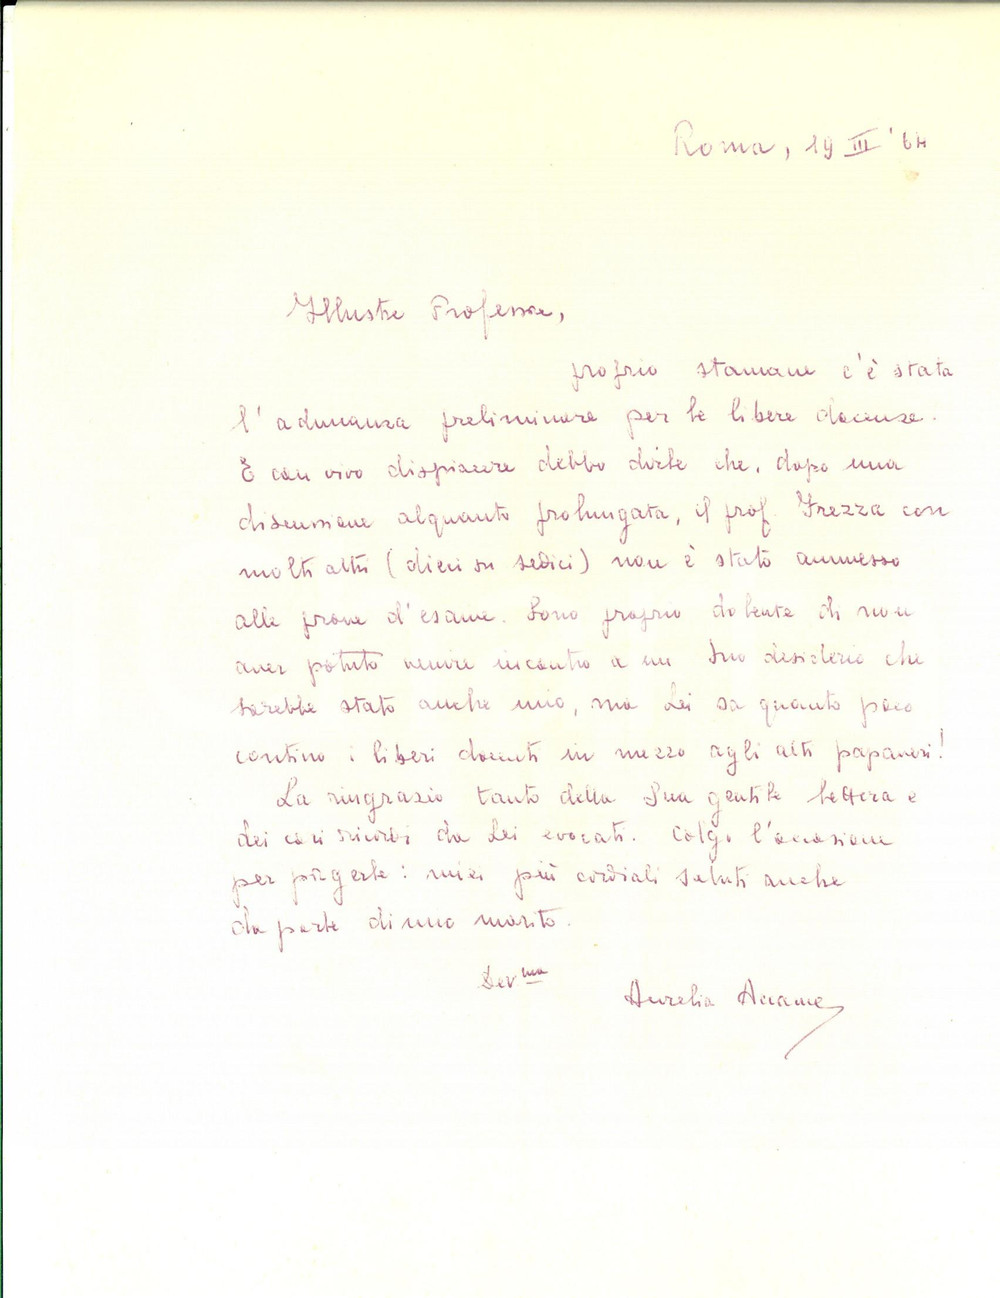 Roma, 19 III '64
Illustre Professore,
proprio stamane c'è stata
l'adunanza preliminare per le libere docenze.
E con vivo dispiacere debbo dirle che, dopo una
discussione alquanto prolungata, il prof. Frezza con
molti altri (dieci su sedici) non è stato ammesso
alle prove d'esame. Sono proprio dolente di non
aver potuto venire incontro a un Suo desiderio che
sarebbe stato anche mio, ma Lei sa quanto poco
contino i liberi docenti in mezzo agli alti papaveri!
La ringrazio tanto della Sua gentile lettera e
dei cari ricordi da Lei evocati. Colgo l'occasione
per porgerle i miei più cordiali saluti anche
da parte di mio marito.
Dev.ma
Aurelia Accame